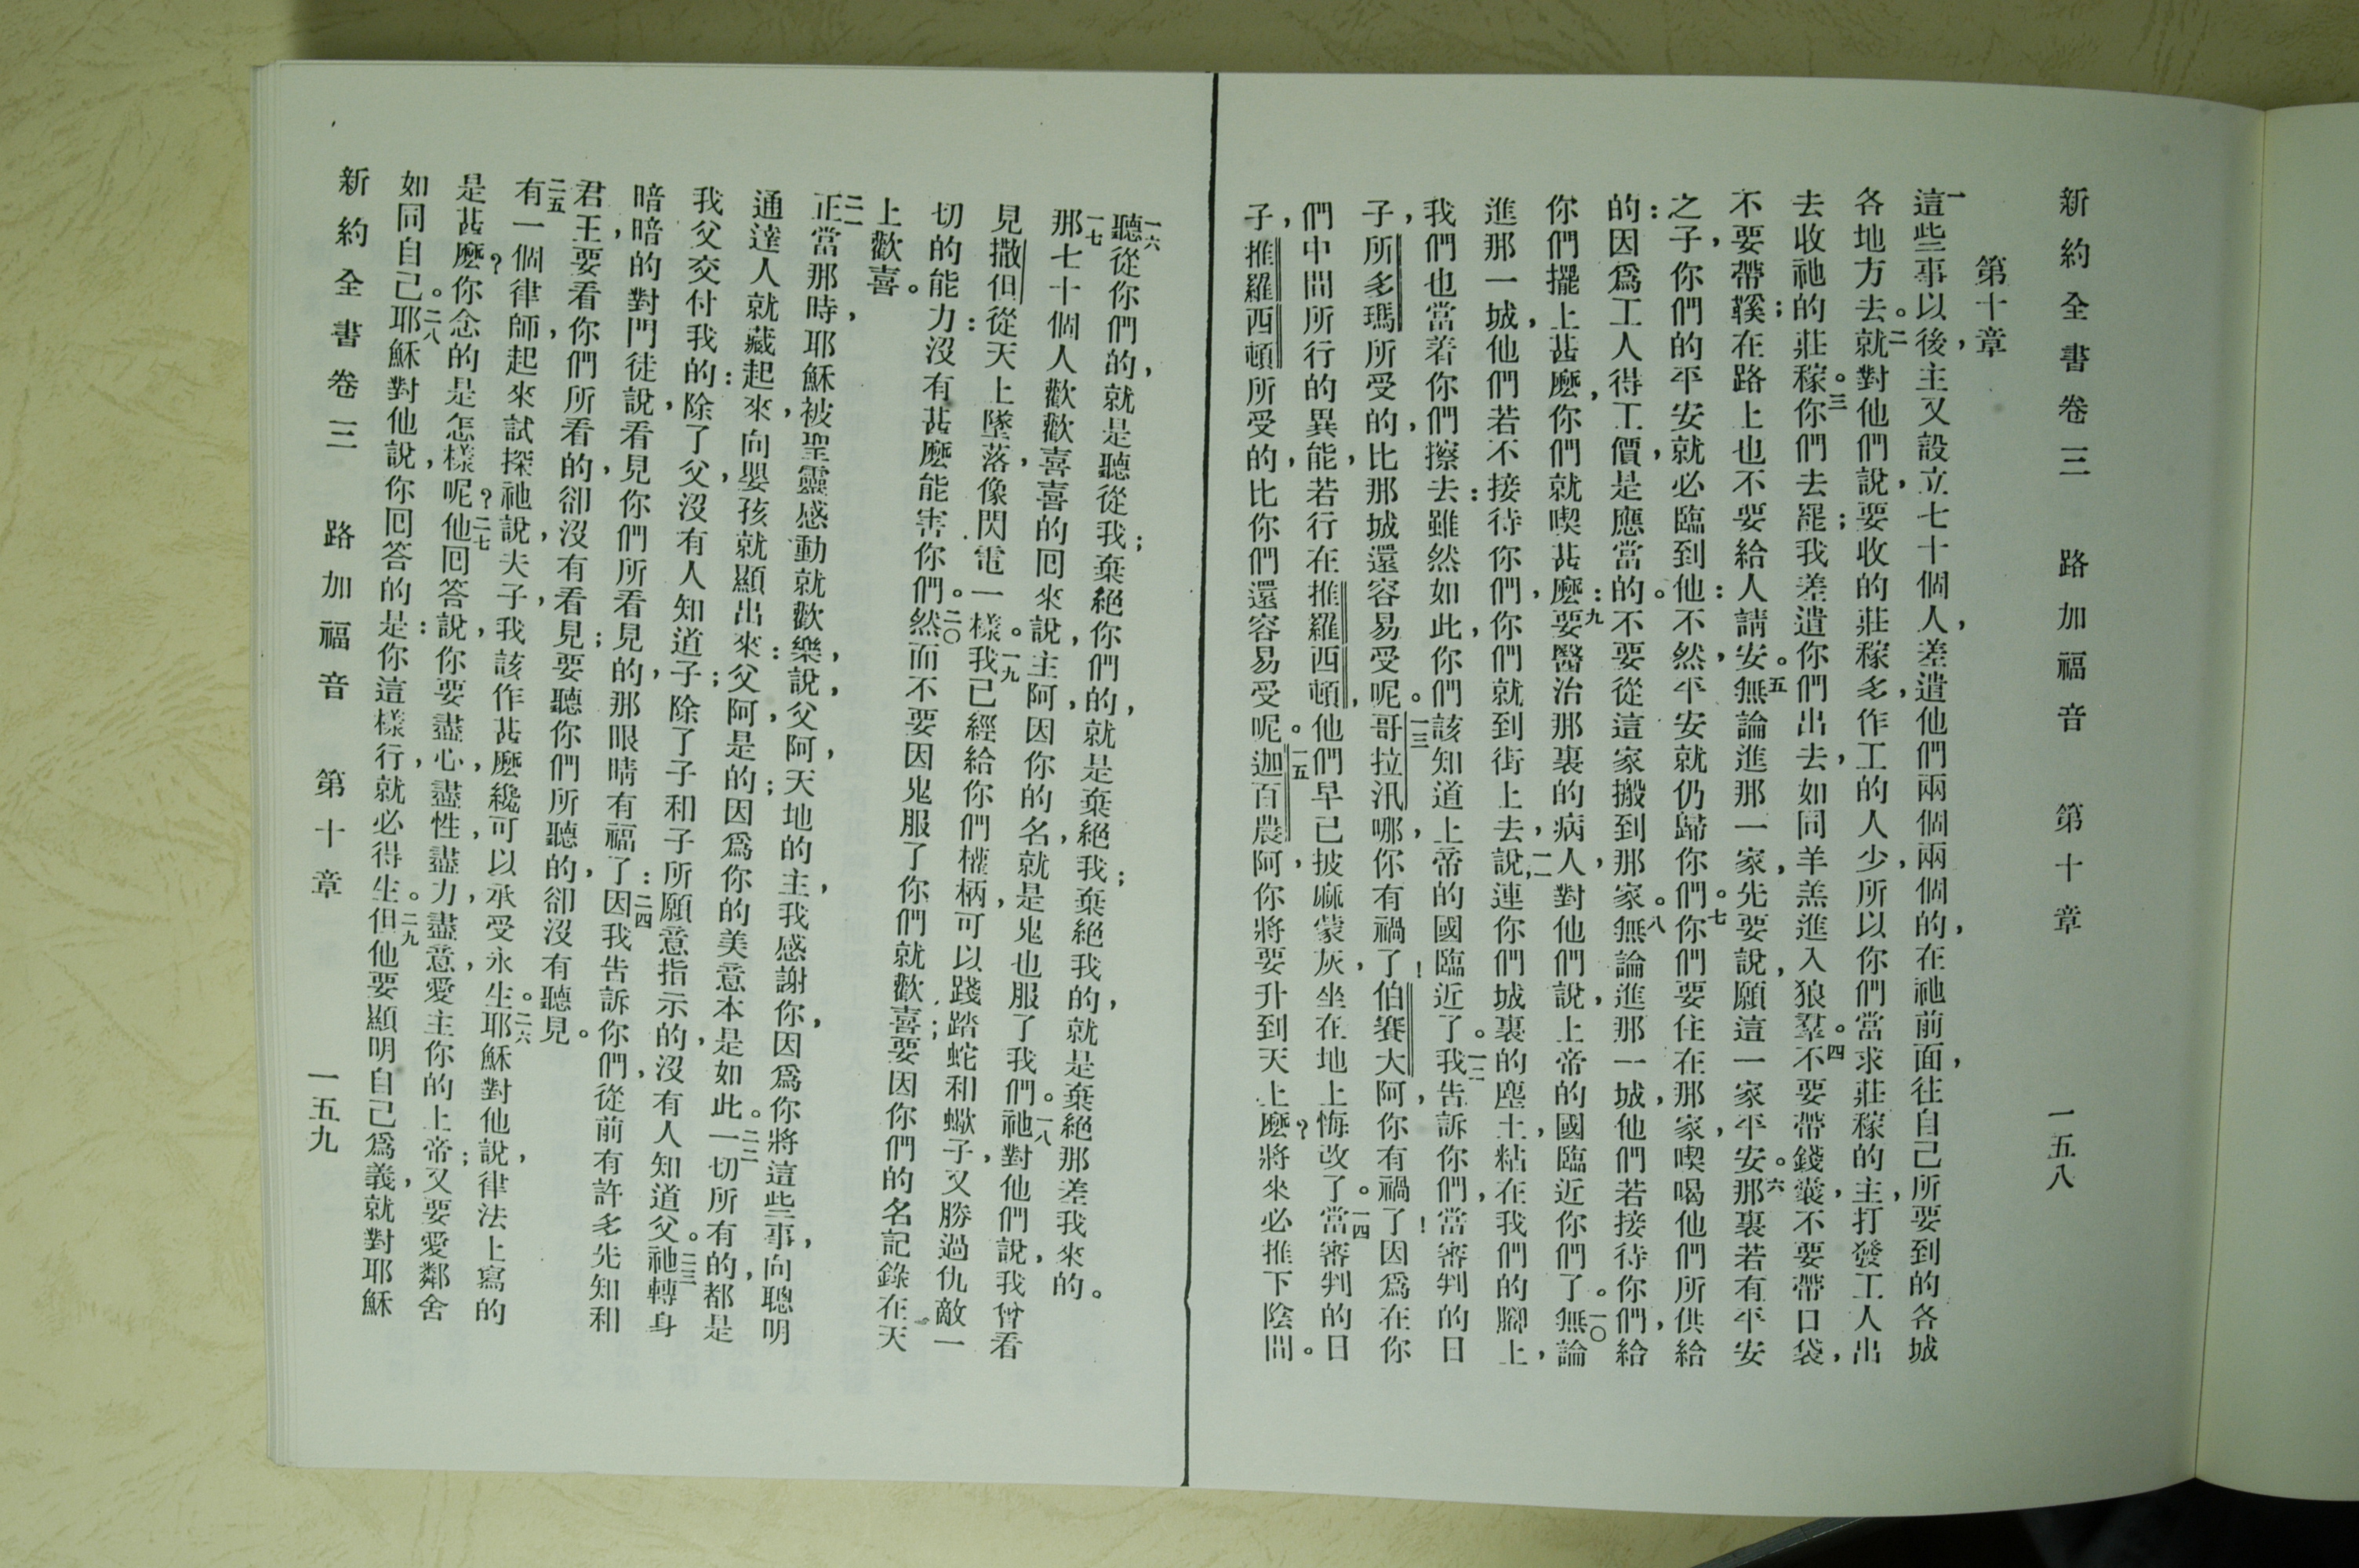 新約全書卷三 路加福音 第十章 一五八
第十章
一這些事以後，主又設立七十個人，差遣他們兩個兩個的，在祂前面，往自己所要到的各城
各地方去。二就對他們說，要收的莊稼多，作工的人少，所以你們當求莊稼的主，打發工人出
去收祂的莊稼。三你們去罷；我差遣你們出去，如同羊羔進入狼羣。四不要帶錢囊，不要帶口袋，
不要帶鞵；在路上也不要給人請安。五無論進那一家，先要說，願這一家平安。六那裏若有平安
之子，你們的平安就必臨到他：不然，平安就仍歸你們。七你們要住在那家，喫喝他們所供給
的：因爲工人得工價，是應當的。不要從這家搬到那家。八無論進那一城，他們若接待你們，給
你們擺上甚麼，你們就喫甚麼：九要醫治那裏的病人，對他們說，上帝的國臨近你們了。一〇無論
進那一城，他們若不接待你們，你們就到街上去，說，一一連你們城裏的塵土，粘在我們的腳上，
我們也當着你們擦去：雖然如此，你們該知道上帝的國臨近了。一二我告訴你們，當審判的日
子，所多瑪所受的，比那城還容易受呢。一三哥拉汛哪，你有禍了！伯賽大阿，你有禍了！因爲在你
們中間所行的異能，若行在推羅西頓，他們早已披麻蒙灰，坐在地上悔改了。一四當審判的日
子，推羅西頓所受的，比你們還容易受呢。一五迦百農阿，你將要升到天上麼？將來必推下陰間。
一六聽從你們的，就是聽從我；棄絕你們的，就是棄絕我；棄絕我的，就是棄絕那差我來的。
一七那七十個人歡歡喜喜的囘來，說，主阿，因你的名，就是鬼也服了我們。一八祂對他們說，我曾看
見撒但從天上墜落，像閃電一樣。一九我已經給你們權柄，可以踐踏蛇和蠍子，又勝過仇敵一
切的能力：沒有甚麼能害你們。二〇然而不要因鬼服了你們就歡喜；要因你們的名記錄在天
上歡喜。
二一正當那時，耶穌被聖靈感動就歡樂，說，父阿，天地的主，我感謝你，因爲你將這些事，向聰明
通達人就藏起來，向嬰孩就顯出來：父阿，是的；因爲你的美意本是如此。二二一切所有的，都是
我父交付我的：除了父，沒有人知道子；除了子和子所願意指示的，沒有人知道父。二三祂轉身
暗暗的對門徒說，看見你們所看見的，那眼睛有福了：二四因我告訴你們，從前有許多先知和
君王，要看你們所看的，卻沒有看見；要聽你們所聽的，卻沒有聽見。
二五有一個律師，起來試探祂，說，夫子，我該作甚麼纔可以承受永生。二六耶穌對他說，律法上寫的
是甚麼？你念的是怎樣呢？二七他囘答說，你要盡心，盡性，盡力，盡意，愛主你的上帝；又要愛鄰舍
如同自己。二八耶穌對他說，你囘答的是：你這樣行，就必得生。二九但他要顯明自己爲義，就對耶穌
新約全書卷三 路加福音 第十章 一五九